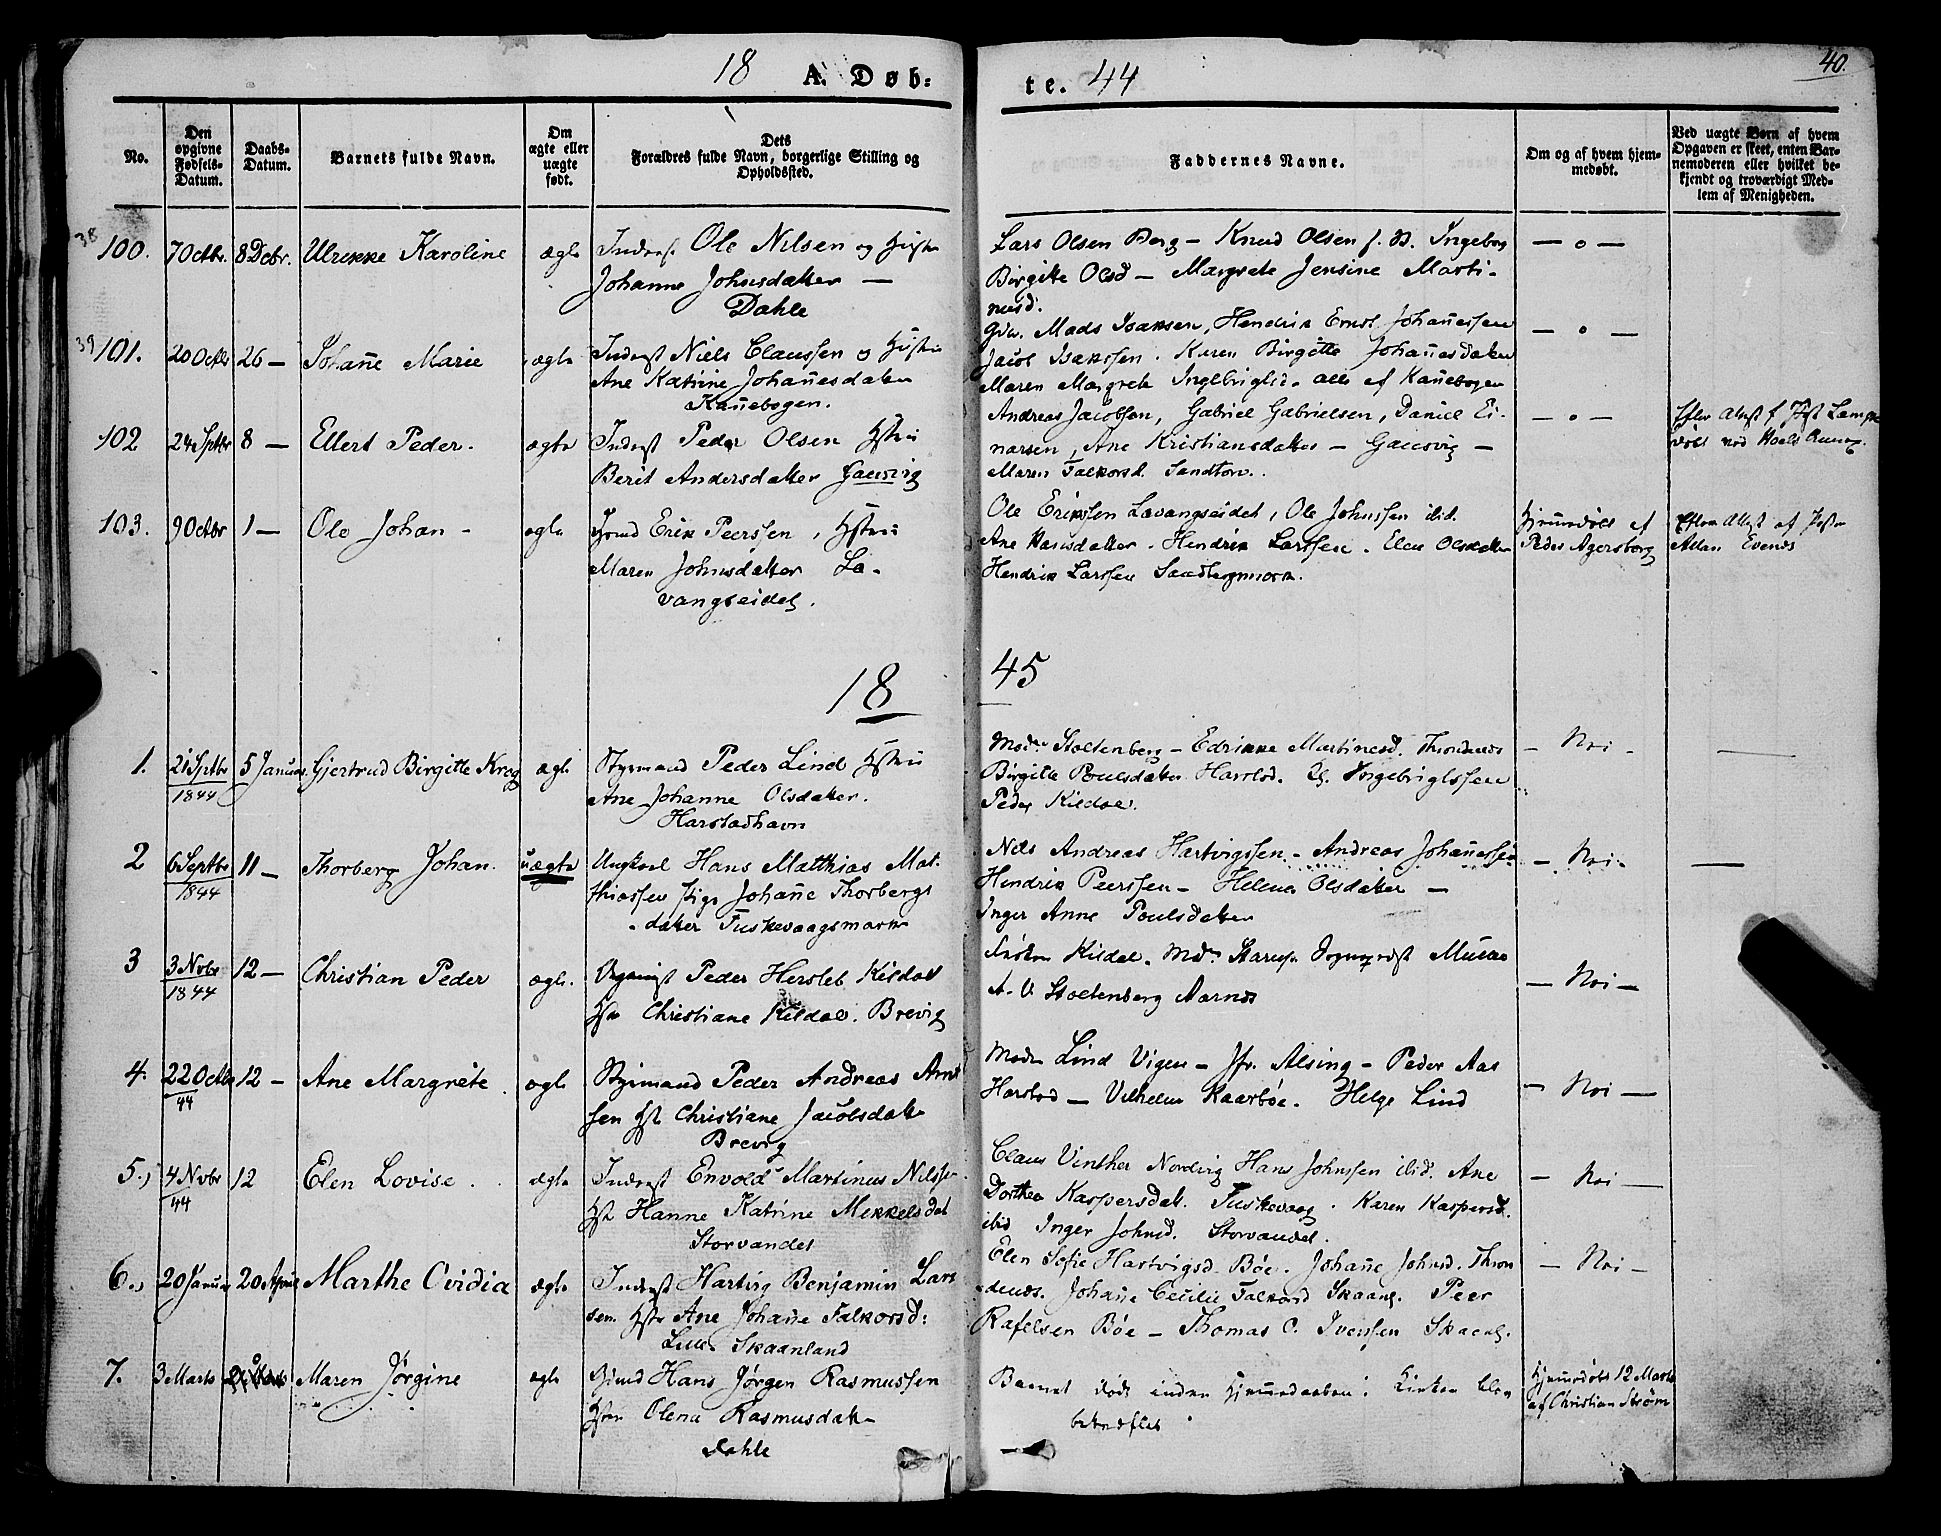 18 A. Døb: te. 44
40.
No.
Den opgivne Fødsels-Datum.
Daabs-Datum.
Barnets fulde Navn.
Om ægte eller uægte født.
Dets Forældres fulde Navn, borgerlige Stilling og Opholdssted.
Faddernes Navne.
Om og af hvem hjemmedøbt.
Ved uægte Børn af hvem Opgaven er skeet, enten Barnemoderen eller hvilket bekjendt og troværdigt Medlem af Menigheden.
38
100. 7 Octbr. 8 Dcbr. Ulrikke Karoline ægte
Inderst Ole Nilsen og Hustru
Johanne Johnsdatter —
Dahle
Lars Olsen Berg — Knud Olsen f. B. Ingeborg
Birgitte Olsd — Margrete Jensine Marti-
nusd.
— o —
39
101. 20 Octbr 26 — Johan̄e Marie ægte
Inderst Niels Claussen og Hustru
Ane Katrine Johan̄esdatter
Kan̄ebogen.
Gdm. Mads Isaksen, Hendrik Ernst Johan̄essen
Jacob Isakssen. Karen Birgitte Johan̄esdatter
Maren Margrete Ingebrigtsd. alle af Kan̄ebogen
— o —
102 24 Septbr 8 — Ellert Peder. ægte
Inderst Peder Olsen Hstru
Berit Andersdatter Gausvig
Andreas Jacobsen, Gabriel Gabrielsen, Daniel Ei-
narsen, Ane Kristiansdatter — Gausvig —
Maren Falkorsd. Sandtorv.
— o —
103. 9 Octbr 1 — Ole Johan - ægte
Gmd Erik Peerssen, Hstru
Maren Johnsdatter La-
vangseidet.
Ole Erikssen Lavangseidet, Ole Johnssen ibid.
Ane Hansdatter. Hendrik Larssen. Elen Olsdatter
Hendrik Larssen Sandbergmark.
Hjemmedøbt af
Peder Agersborg
Efter Attest af
Evenes
18 45
1. 21 Septbr 1844 5 Januar Gjertrud Birgitte Krog ægte
Styrmand Peder Lind Hstru
Ane Johanne Olsdatter.
Harstadhavn
Mad. Stoltenberg — Edrikke Martinesd. Throndenes
Birgitte Poulsdatter Harstad. Ingebrigtssen
Peder Kildal.
— Nei —
2 6 Septbr 1844 11 — Thorberg Johan. uægte
Ungkarl Hans Matthias Mat-
thiassen Pige Johan̄e Thorbergs
datter Fuskevaagsmark
Nils Andreas Hartvigssen — Andreas Johan̄essen
Hendrik Peerssen — Helena Olsdatter —
Inger Anne Poulsdatter
— Nei —
3 3 Novbr 1844 12 — Christian Peder ægte.
Organist Peder Hersleb Kildal
Hstr Christiane Kildal. Brevig
Frøken Kildal. Mad. Sogneprest
A. V. Stoltenberg Aarnes
— Nei —
4. 22 Octbr 44 12 — Ane Margrete. ægte
Styrmand Peder Andreas Arnt
sen Hst Christiane Jacobsdatter
Brevig
Mad. Lind Vigen — Jfr. Alsing — Peder Aas
Harstad — Vilhelm Kaarbøe. Helge Lind
— Nei —
5. 4 Novbr 44 12 Elen Lovise. ægte
Inderst Envold Martinus Nilssen
Hst Hanne Katrine Mekkelsdat
Storvandet
Claus Vinther Nordvig Hans Johnssen ibid. Ane
Dorthea Kaspersdat. Fuskevaag. Karen Kaspersd.
ibid Inger Johnsd. Storvandet.
— Nei —
6. 20 Januar 20 April Marthe Ovidia ægte
Inderst Hartvig Benjamin Lars
sen. Hstr Ane Johan̄e Falkorsd:
Lille Skaanland
Elen Sofie Hartvigsd. Bøe. Johan̄e Johnsd. Thron
denes. Johan̄e Cecilie Falkorsd Skaanl. Peer
Rafelsen Bøe — Thomas C. Ivenssen Skaanl.
— Nei —
7. 3 Marts Maren Jørgine ægte
Gjmd Hans Jørgen Rasmussen
Hstru Olena Rasmusdatr
Dahle
Barnet døde inden Hjemmedaaben i Kirken blev
bekræftet
Hjemmedøbt 12 Marts
af Christian Strøm